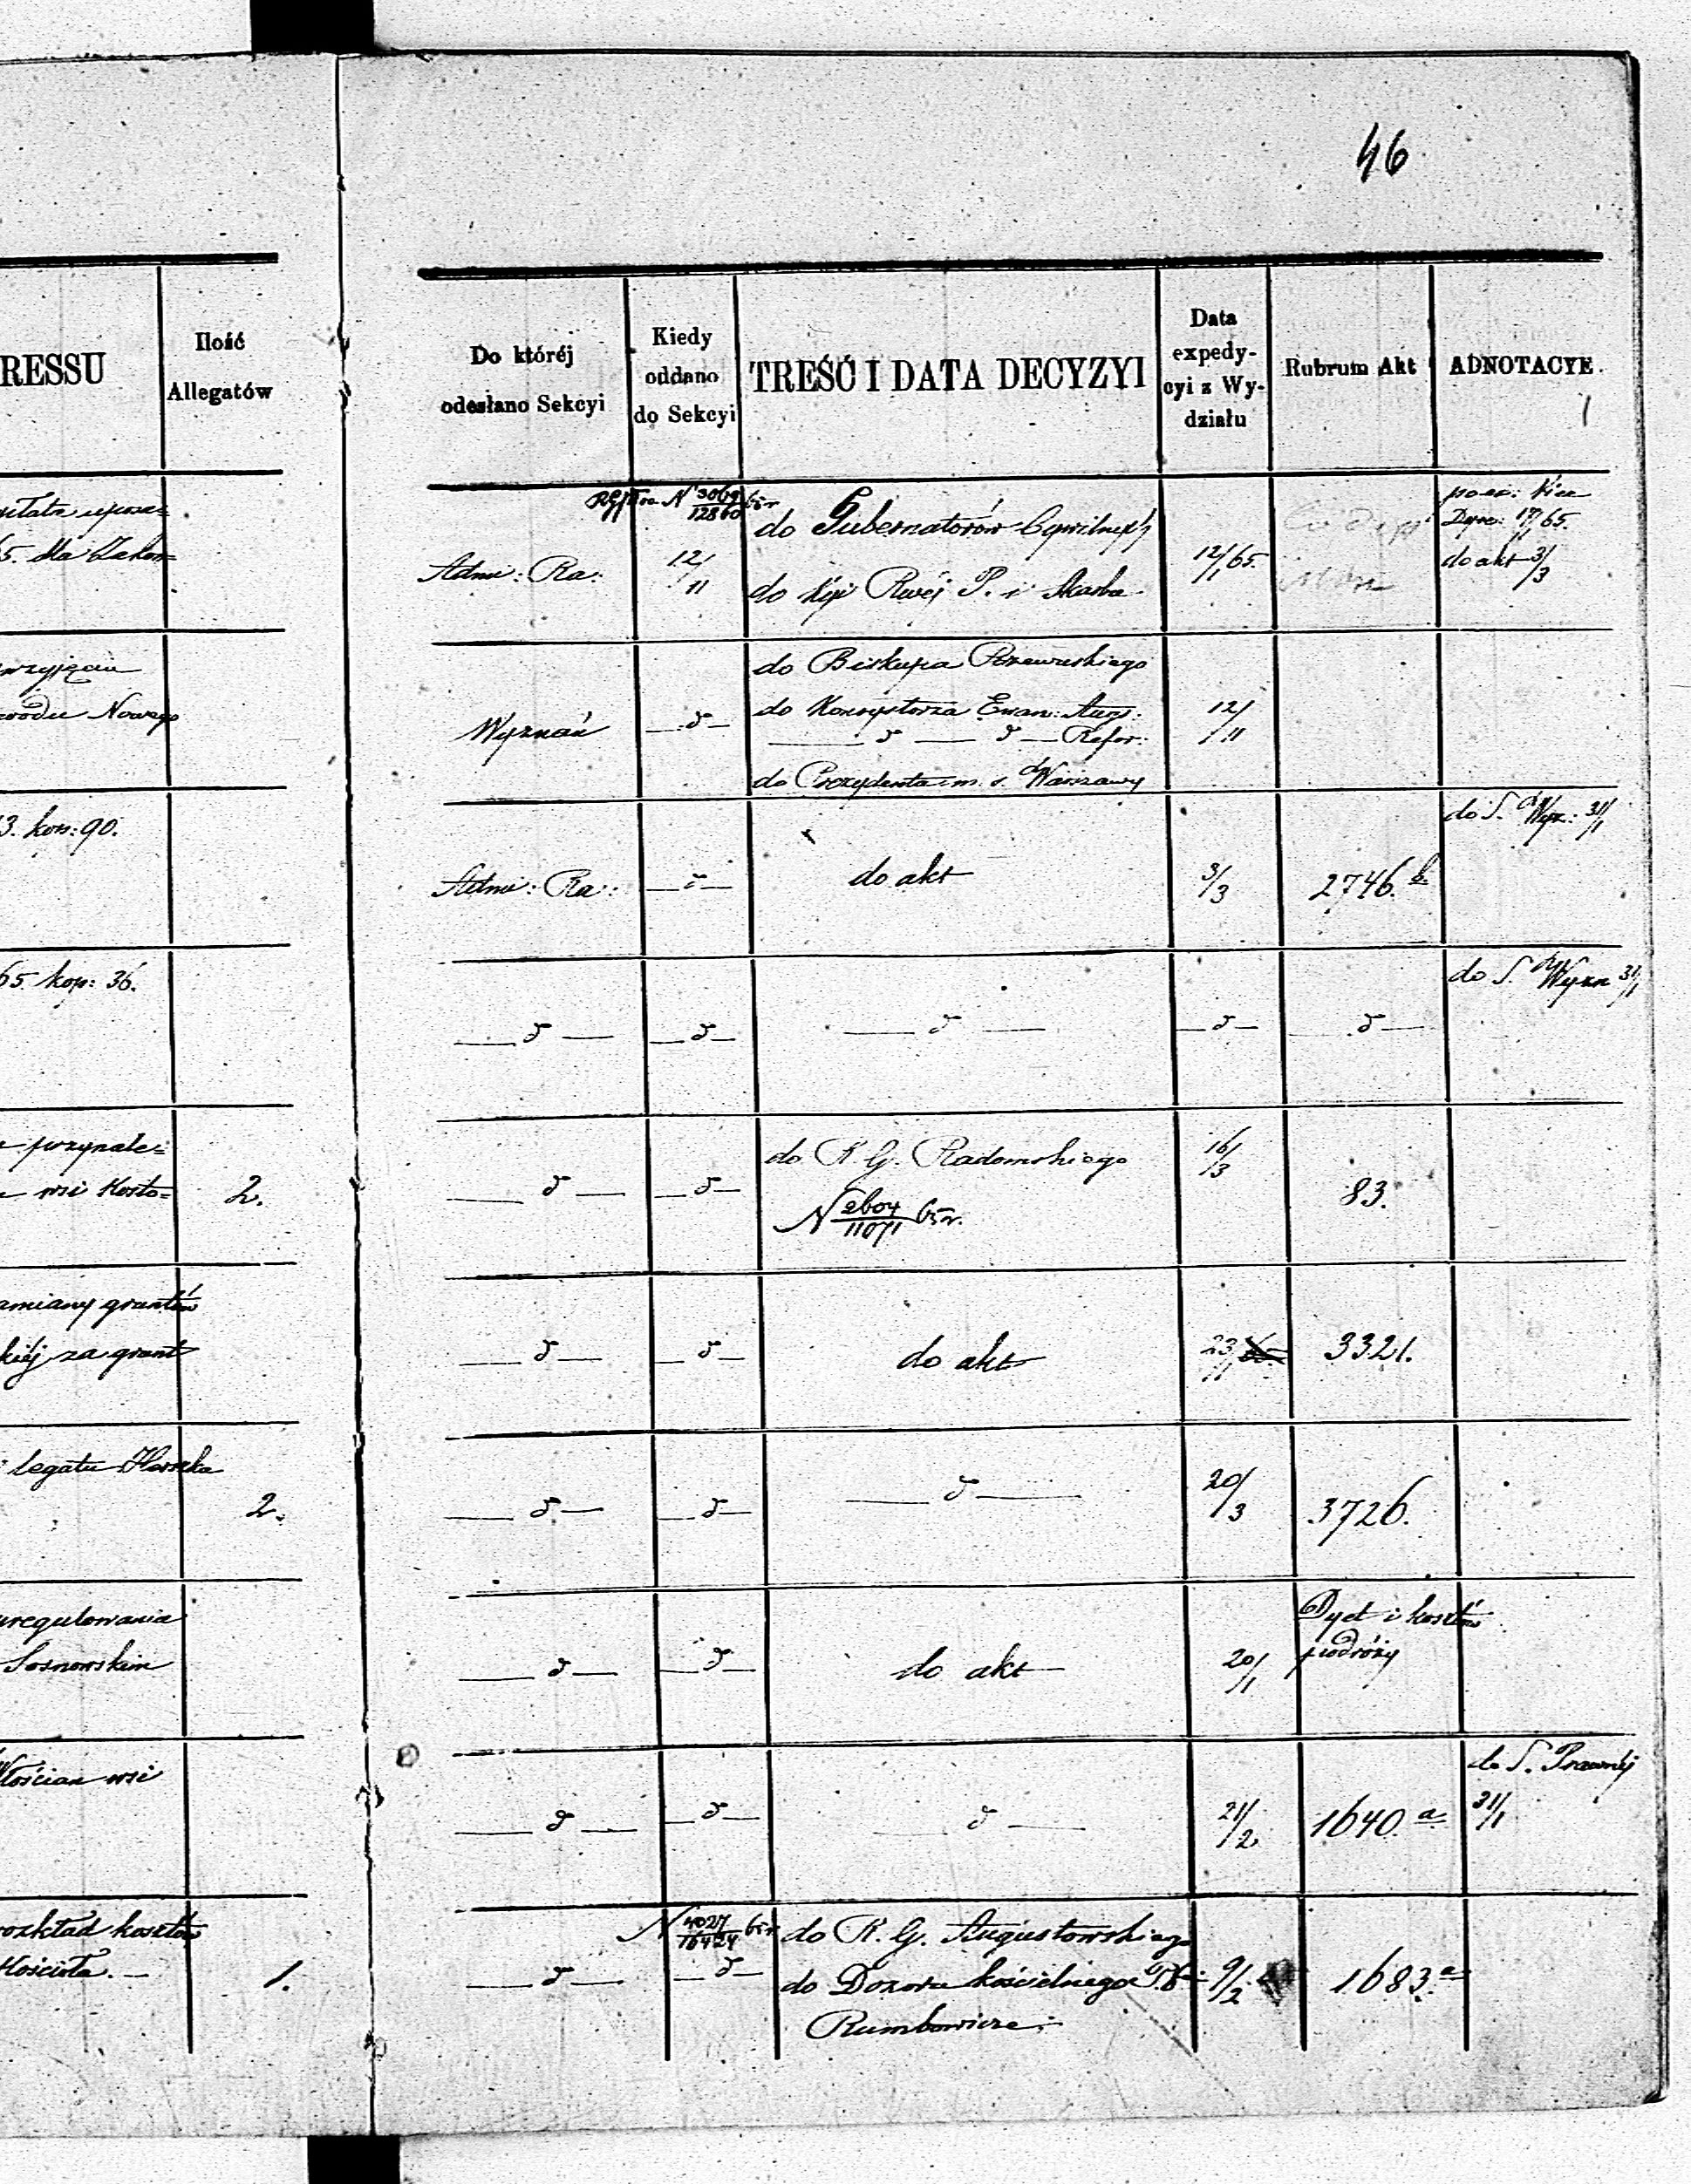 46
RESSU
Ilość
Allegatów
Do któréj
odesłano Sekcyi
Kiedy
oddano
do Sekcyi
TREŚĆ I DATA DECYZYI
Data
expedy-
cyi z Wy-
działu
Rubrum Akt
ADNOTACYE.
5. dla Zakon=
Admi: Ra:
12/11
N 3069/12860 65 r
do Gubernatorów Cywilnych
do Kyi Rwéj P. i Skarbu
12/1 65.
17/1 65.
do akt 3/3
przyjęciu
Nowego
Wyznań
— d —
do Biskupa Rzewuskiego
do Konsystorza Ewan: Aug:
— d — d — Refor:
do Prezydenta m. s. Warszawy
12/11
3. kop: 90.
Admi: Ra:
— d —
do akt
3/3
2746. b.
do S. Wyz: 31/1
65 kop: 36.
— d —
— d —
— d —
— d —
— d —
do S. Wyzn 31/1
przynale=
wsi Kosto=
2.
— d —
— d —
do R. G. Radomskiego
N 2604/11071 65 r.
16/3
83.
zamiany gruntów
kiéj za grunt
— d —
— d —
do akt
23/1
3321.
legatu Herszka
2.
— d —
— d —
— d —
20/3
3726.
uregulowania
Sosnowskim
— d —
— d —
do akt
20/1
Dyet i kosztów
podróży
Włościan wsi
— d —
— d —
— d —
21/2
1640 a
do S. Prawnéj
31/1
rozkład kosztów
Kościoła. —
1.
— d —
N 4027/16424 65 r
— d —
do R. G. Augustowskiego
do Dozoru kościelnego
Rumbowicze
9/2
1683. a